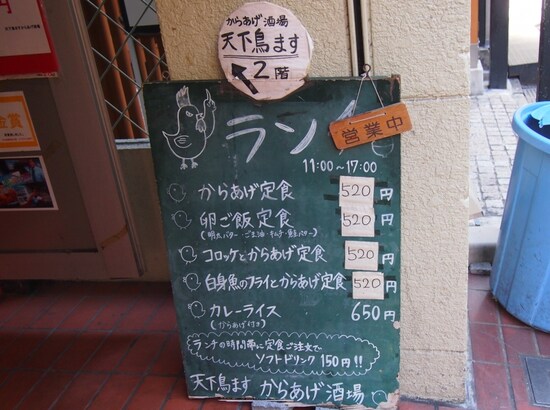 からあげ酒場
天下鳥ます
2階
ラン
営業中
11:00～17:00
からあげ定食 520円
卵ご飯定食 520円
コロッケとからあげ定食 520円
白身魚のフライとからあげ定食 520円
カレーライス 650円
(からあげ付き)
ランチの時間帯に定食ご注文で
ソフトドリンク 150円!!
天下鳥ます からあげ酒場